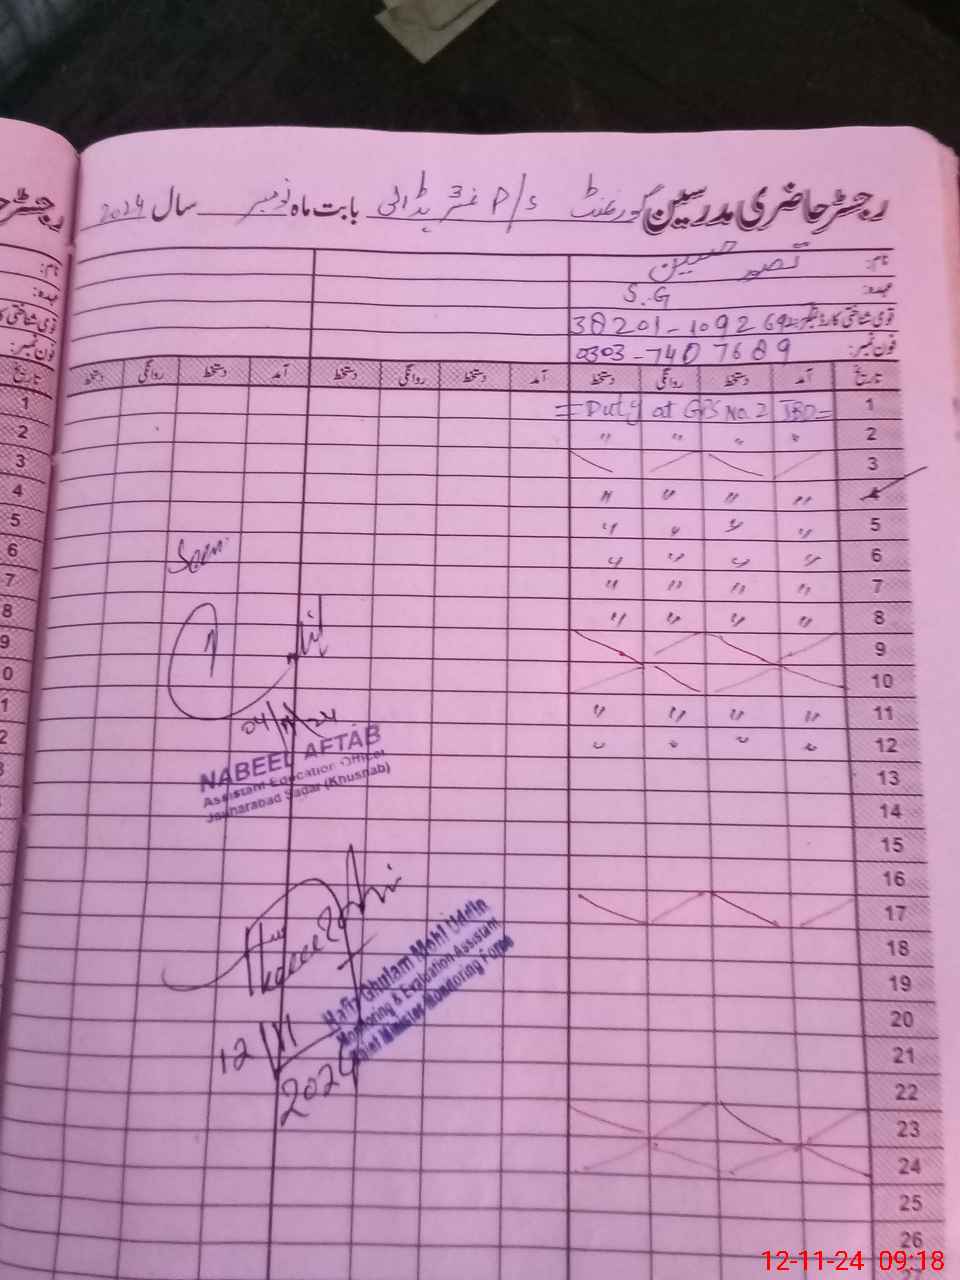 رجسٹر حاضری مدرسین گورنمنٹ P/S بابت ماہ نومبر سال 2024
نام: تصور حسین
عہدہ: S.G
قومی شناختی کارڈ نمبر: 38201-109269
فون نمبر: 0303-7407689
تاریخ آمد دستخط روانگی دستخط آمد دستخط روانگی دستخط آمد دستخط روانگی دستخط
1 = Duty at GPS No. 2 JBD =
2 " " " "
3
4 " " " "
5 " " " "
6 " " " "
7 " " " "
8 " " " "
9
10
11 " " " "
12 " " " "
13
14
15
16
17
18
19
20
21
22
23
24
25
26
Seen
04/11/24
NABEEL AFTAB
Assistant Education Officer
Jauharabad Sadar (Khushab)
12/11
2024
Hafiz Ghulam Mohi Uddin
Monitoring & Evaluation Assistant
Chief Minister Monitoring Force
12-11-24 09:18